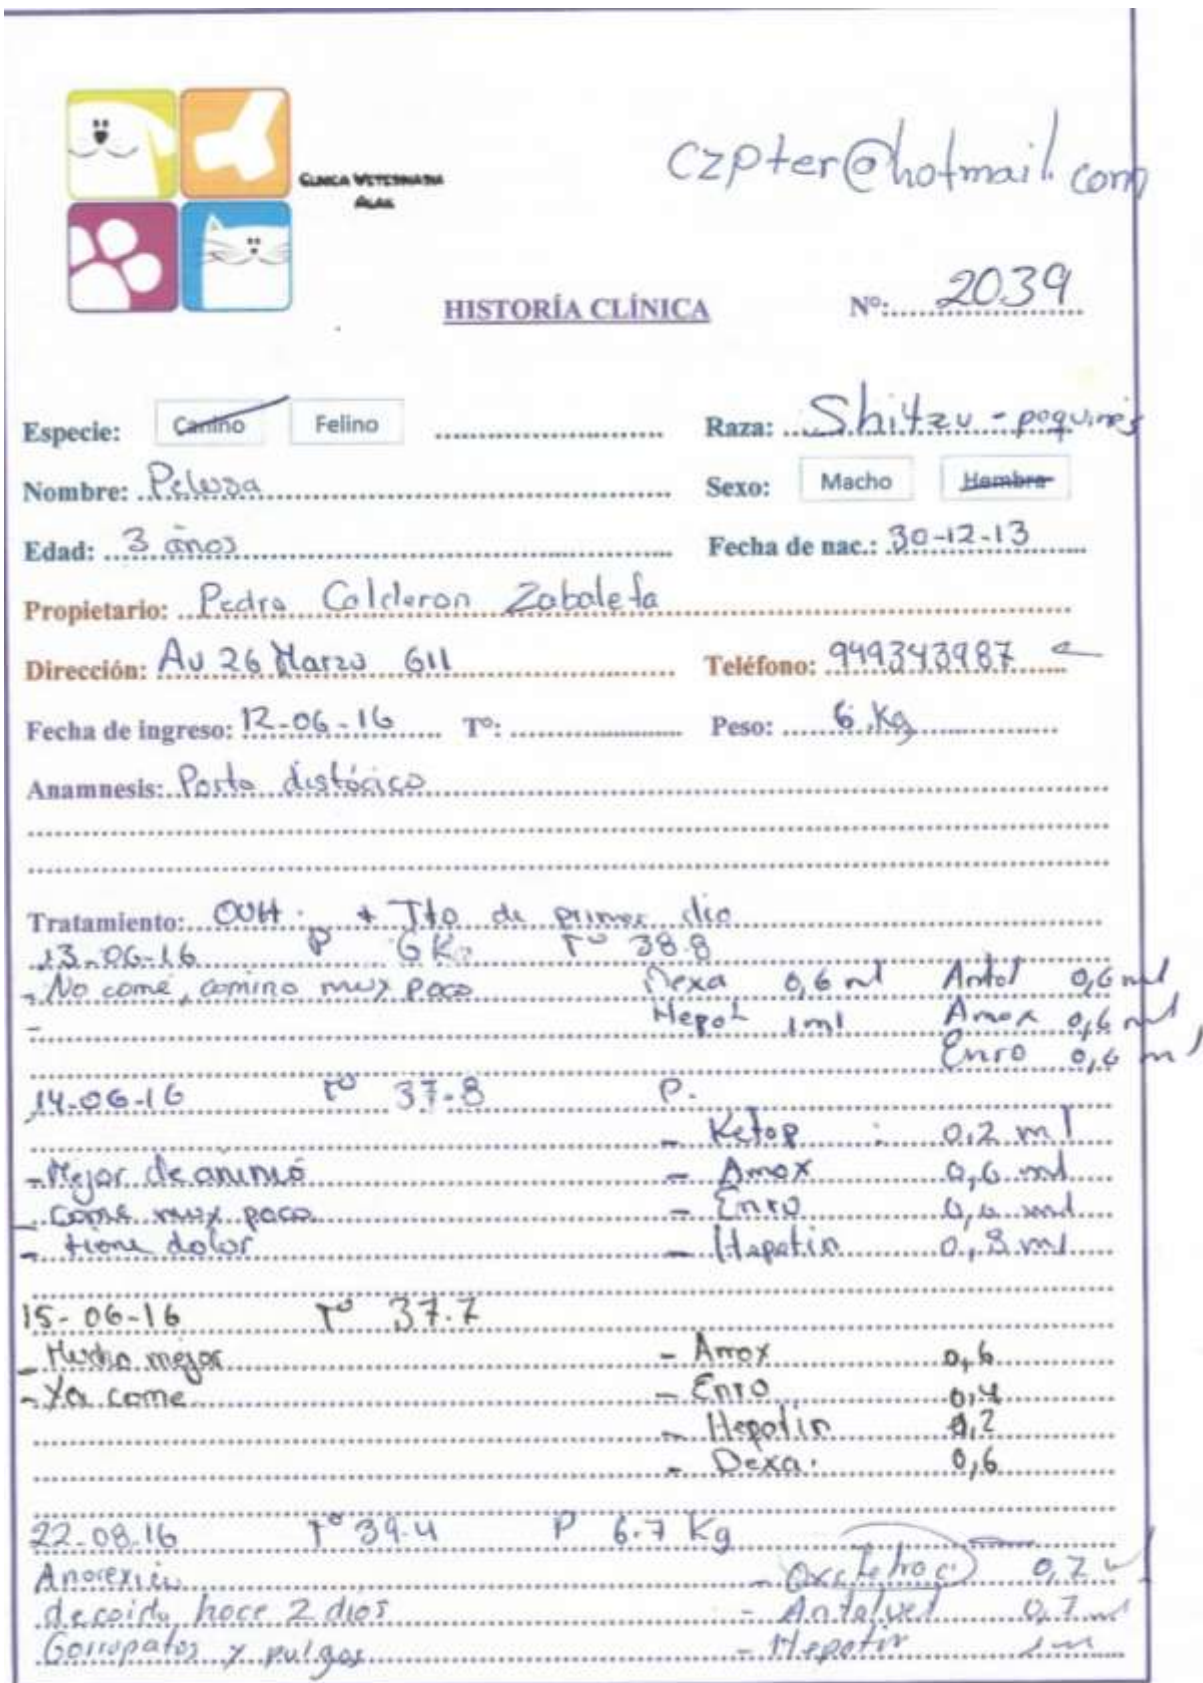 CLINICA VETERINARIA
czpter@hotmail.com
HISTORÍA CLÍNICA Nº: 2039
Especie: Canino Felino Raza: Shitzu - pequines
Nombre: Pelusa Sexo: Macho Hembra
Edad: 3 años Fecha de nac.: 30-12-13
Propietario: Pedro Calderon Zabaleta
Dirección: Av 26 Marzo 611 Teléfono: 949343987
Fecha de ingreso: 12-06-16 Tº: Peso: 6 Kg
Anamnesis: Parto distócico
Tratamiento: OVH + Tto de primer dia
13-06-16 P 6 Kg Tº 38.8
- No come, camina muy poco Dexa 0,6 ml Antal 0,6 ml
- Hepat 1 ml Amox 0,6 ml
Enro 0,6 ml
14-06-16 Tº 37-8 P.
- Ketop 0,2 ml
- Mejor de animo - Amox 0,6 ml
- Come muy poco - Enro ml
- tiene dolor - Hepatin 0,8 ml
15-06-16 Tº 37.7
- Mucho mejor - Amox 0,6
- Ya come - Enro 0,4
- Hepatin 0,2
- Dexa. 0,6
22-08-16 Tº 39-4 P 6.7 Kg
Anorexia - Oxitetrac 0,7
decaida hace 2 dias - Antalvet 0,7 ml
Garrapatas y pulgas - Hepatin 1 ml